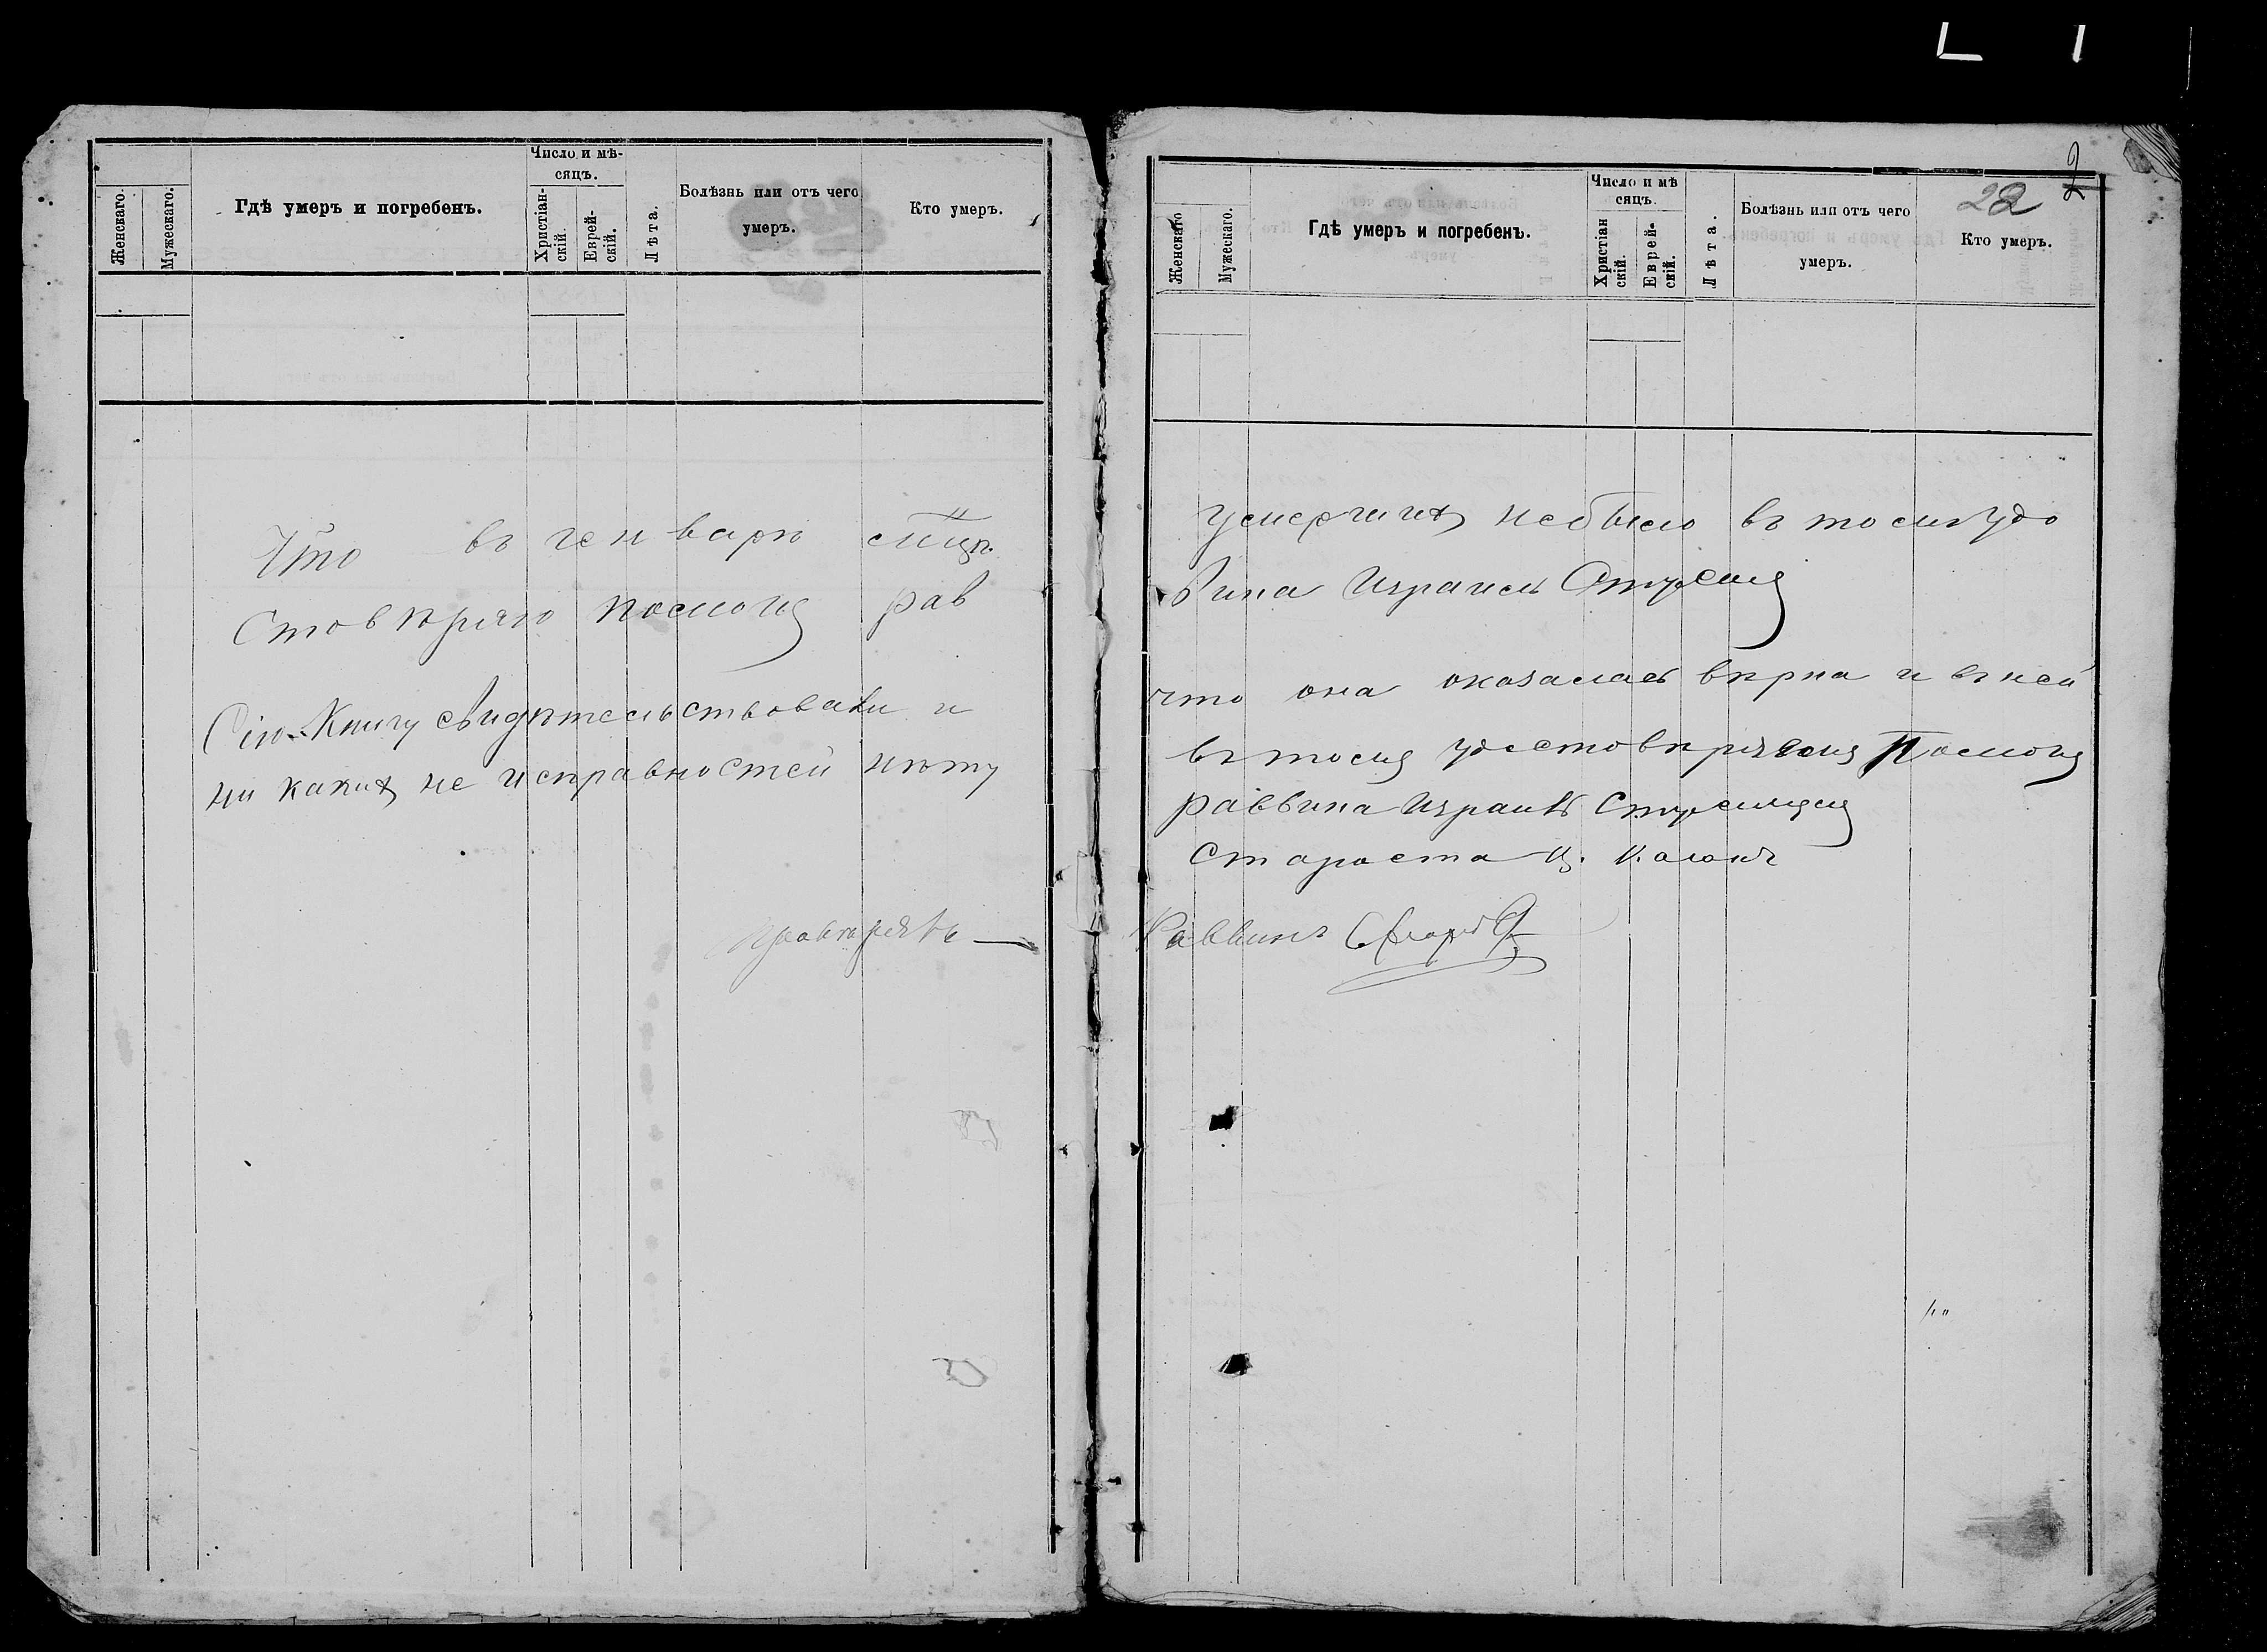 Женскаго.
Мужескаго.
Гдѣ умеръ и погребенъ.
Число и мѣ-
сяцъ.
Христіан-
скій.
Еврей-
скій.
Лѣта.
Болѣзнь или отъ чего
умеръ.
Кто умеръ.
Что въ генварѣ мцѣ
стовѣряю помощ рав
Сію Книгу свидѣтельствовали и
ни какихъ не исправностей нѣту
2
22
Женскаго
Мужескаго.
Гдѣ умеръ и погребенъ.
Число и мѣ
сяцъ.
Христіан
скій.
Еврей-
скій.
Лѣта.
Болѣзнь или отъ чего
умеръ.
Кто умеръ.
умершихъ небыло въ томъ удо
вина Израиль
что она оказалась вѣрна и въ ней
въ томъ удостовѣряемъ Помощ
раввина Израиль
Староста
Раввинъ